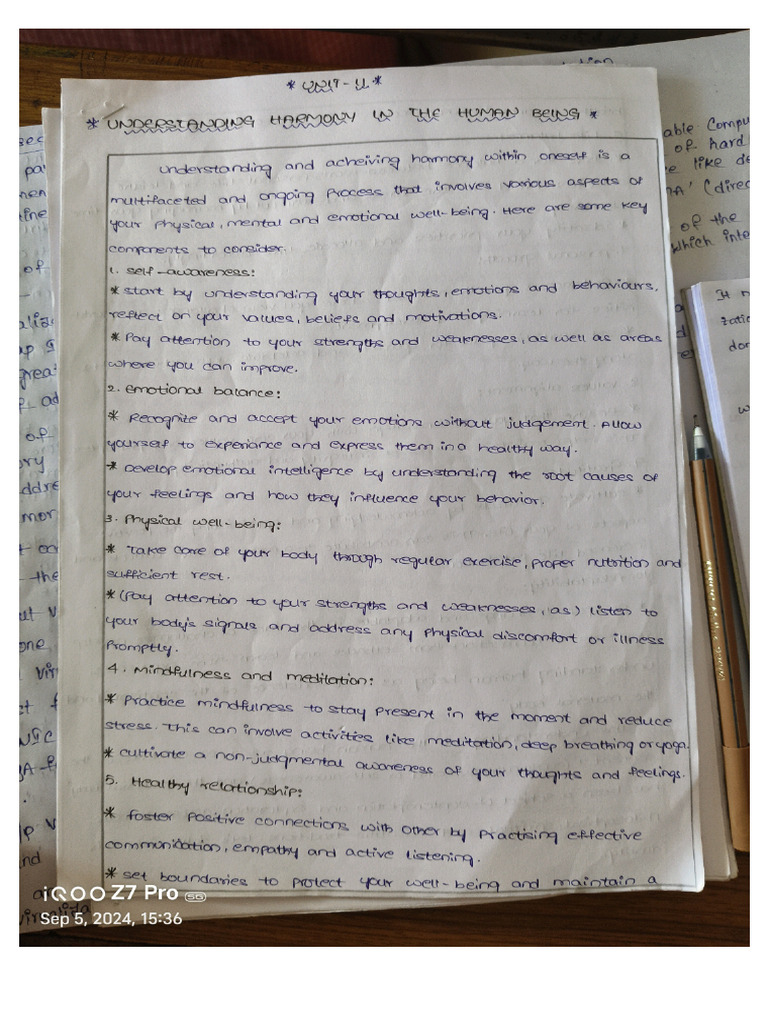 * UNIT - II *
* UNDERSTANDING HARMONY IN THE HUMAN BEING *
Understanding and acheiving harmony within oneself is a
multifaceted and ongoing process that involves various aspects of
your physical, mental and emotional well-being. Here are some key
components to consider.
1. self-awareness:
* start by understanding your thoughts, emotions and behaviours,
reflect on your values, beliefs and motivations.
* Pay attention to your strengths and weaknesses, as well as areas
where you can improve.
2. Emotional balance:
* Recognize and accept your emotions without judgement. Allow
yourself to experiance and express them in a healthy way.
* Develop emotional intelligence by understanding the root causes of
your feelings and how they influence your behavior.
3. Physical well-being:
* Take care of your body through regular exercise, proper nutrition and
sufficient rest.
* (Pay attention to your strengths and weaknesses, as) listen to
your body's signals and address any physical discomfort or illness
Promptly.
4. Mindfulness and meditation:
* Practice mindfulness to stay present in the moment and reduce
stress. This can involve activities like meditation, deep breathing or yoga.
* cultivate a non-judgmental awareness of your thoughts and feelings.
5. Healthy relationship:
* foster positive connections with other by practising effective
communication, empathy and active listening.
* set boundaries to protect your well-being and maintain a
able compu
of hard
like de
(direc
of the
which inte
of
of
the
iQOO Z7 Pro 5G
Sep 5, 2024, 15:36